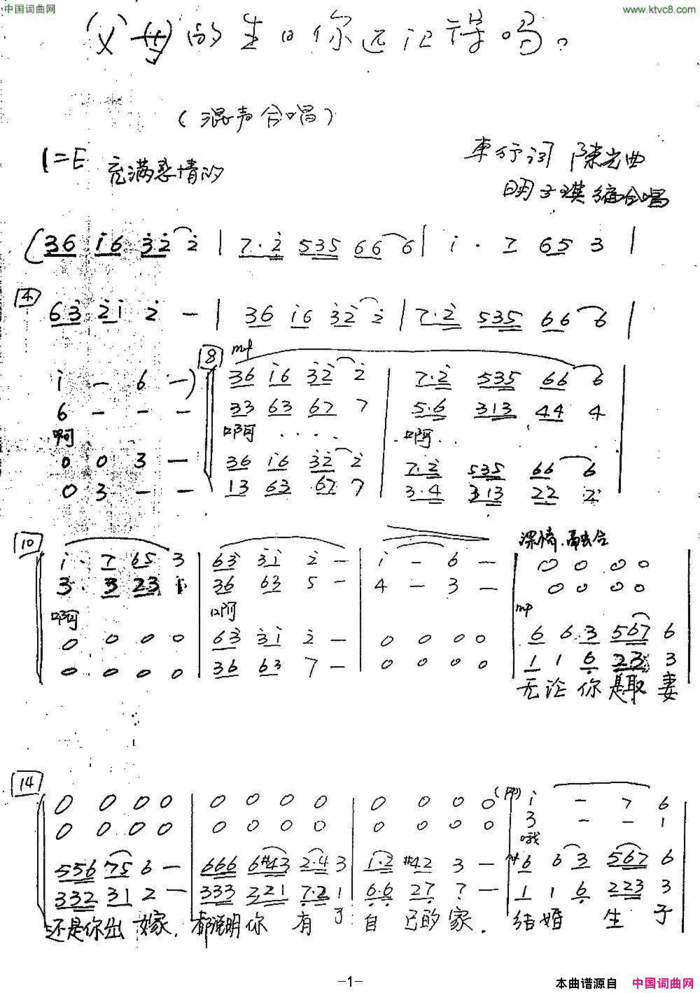 中国词曲网
www.ktvc8.com
父母的生日你还记得吗。
(混声合唱)
1=E 充满恋情的
车行词 陈光曲
明子琪编合唱
(36 i6 32 2 | 7·2 535 66 6 | i · 7 65 3 |
4
63 21 2 — | 36 i6 32 2 | 7·2 535 66 6 |
8 mp
i — 6 —) 36 i6 32 2 | 7·2 535 66 6
6 — — — 33 63 67 7 | 5·6 313 44 4
啊 啊 · · · · 啊 · · ·
0 0 3 — 36 i6 32 2 | 7·2 535 66 6
0 3 — — 13 63 67 7 | 3·4 313 22 2
10 深情
i · 7 65 3 | 63 31 2 — | i — 6 — | 0 0 0 0
3 · 3 23 1 | 36 63 5 — | 4 — 3 — | 0 0 0 0
啊 啊 mp
0 0 0 0 | 63 31 2 — | 0 0 0 0 | 6 6 3 567 6
0 0 0 0 | 36 63 7 — | 0 0 0 0 | 1 1 6 23 3
无论你是取妻
14
0 0 0 0 | 0 0 0 0 | 0 0 0 0 | i — 7 6
0 0 0 0 | 0 0 0 0 | 0 0 0 0 | 3 — — 1
哦
556 75 6 — | 666 6#43 2·4 3 | 1·2 #42 3 — | 6 6 3 567 6
332 31 2 — | 333 321 7·2 1 | 6·6 27 7 — | 1 1 6 223 3
还是你出嫁, 都说明你有了自己的家. 结婚生子
-1-
本曲谱源自 中国词曲网